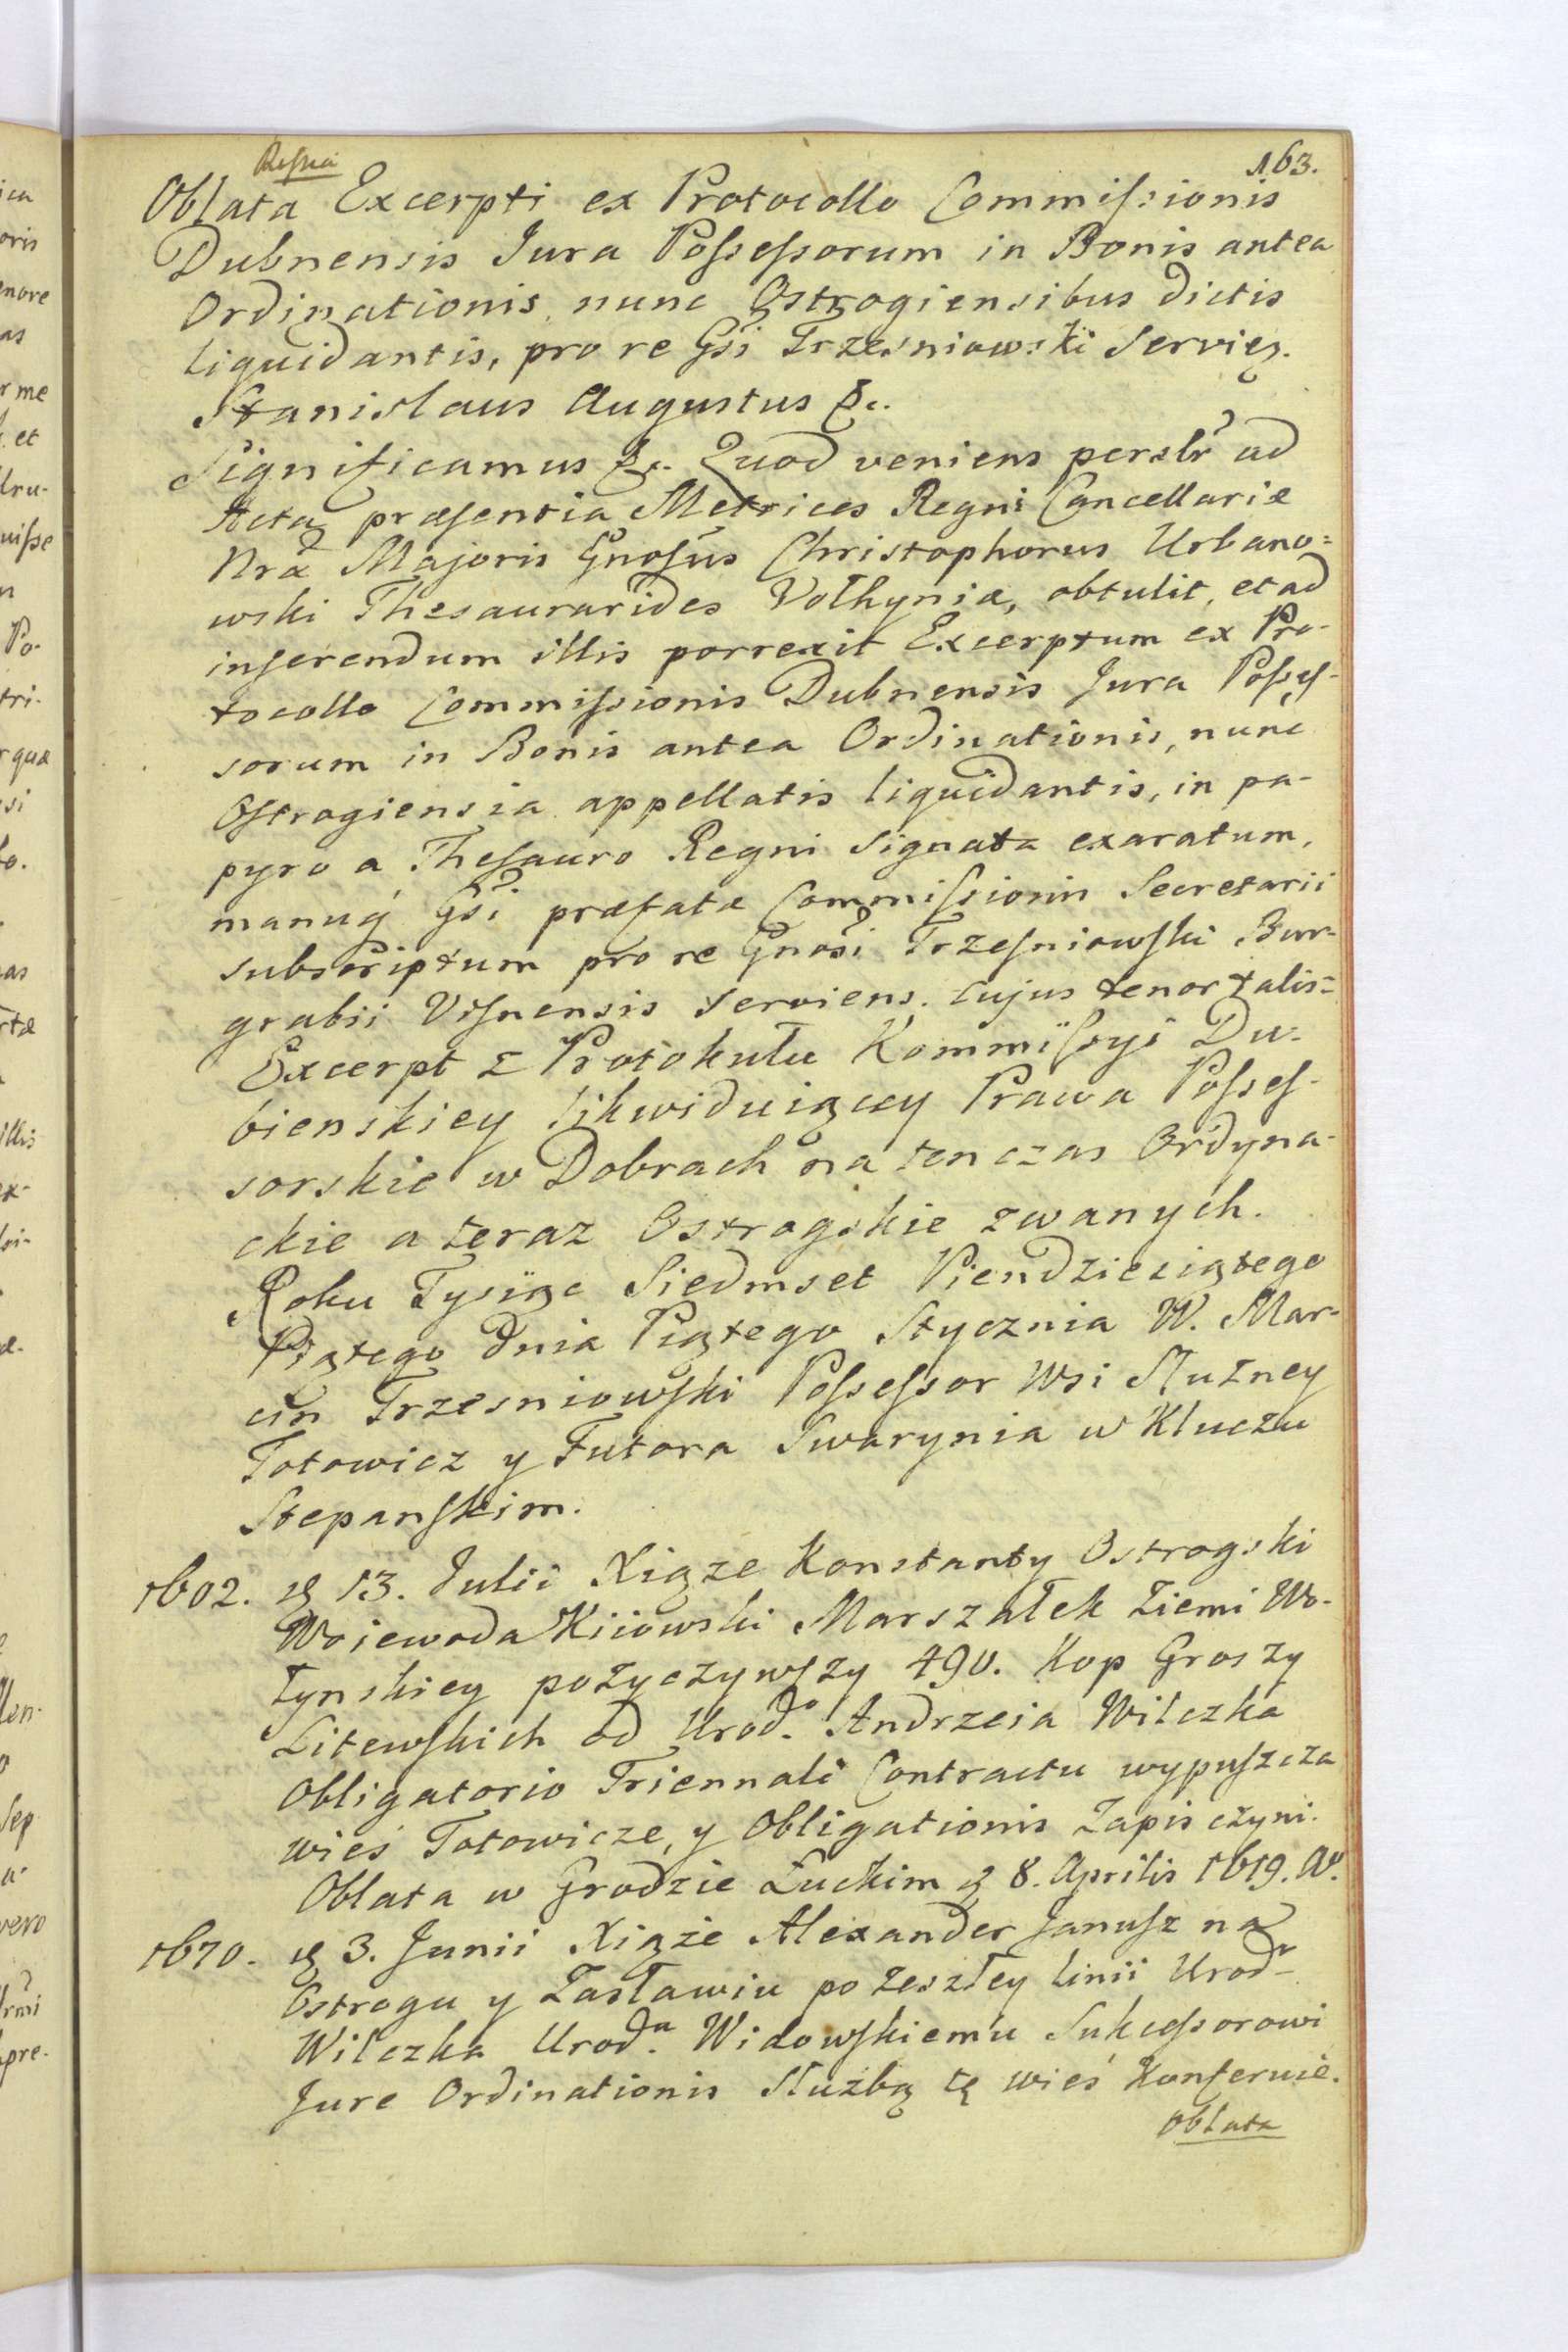 163.
Oblata Excerpti ex Protocollo Commissionis
Dubnensis Jura Possessorum in Bonis antea
Ordinationis nunc Ostrogiensibus dictis
liquidantis, pro re Gsi Trzesniowski Servięs.
Stanislaus Augustus &c.
Significamus &c. Quod veniens perslr ad
Acta præsentia Metrices Regni Cancellariæ
Nræ Majoris Gnosus Christophorus Urbano=
wski Thesaurarides Volhyniæ, obtulit, et ad
inserendum illis porrexit Excerptum ex Pro-
tocollo Commissionis Dubnensis Jura Posses-
sorum in Bonis antea Ordinationis, nunc
Ostrogiensia appellatis liquidantis, in pa-
pyro a Thesauro Regni Signata exaratum,
manuq Gsi præfatæ Commissionis Secretarii
subscriptum pro re Gnosi Trzesniowski Bur-
grabii Visnensis serviens. Cujus tenor talis=
Excerpt z Protokułu Kommissyi Du-
bienskiey likwiduiącey Prawa Posses-
sorskie w Dobrach na ten czas Ordyna-
ckie a teraz Ostrogskie zwanych.
Roku Tysiąc Siedmset Piendziesiątego
Piątego Dnia Piątego Stycznia W. Mar-
cin Trzesniowski Possessor Wsi Służney
Totowicz y Futora Swarynia w Kluczu
Stepanskim.
1602. 13. Julii Xiąze Konstanty Ostrogski
Woiewoda Kiiowski Marszałek Ziemi Wo-
łynskiey pożyczywszy 490. Kop Groszy
Litewskich od Urod.o Andrzeia Wilczka
Obligatorio Triennali Contractu wypuszcza
wieś Totowicze, y Obligationis Zapis czyni.
Oblata w Grodzie Łuckim 8. Aprilis 1619. Ao.
1670. 3. Junii Xiąże Alexander Janusz na
Ostrogu y Zasławiu po zeszłey linii Urod
Wilczka Urod.u Widowskiemu Sukcessorowi
Jure Ordinationis Służbą tę wieś Konferuie.
Oblata